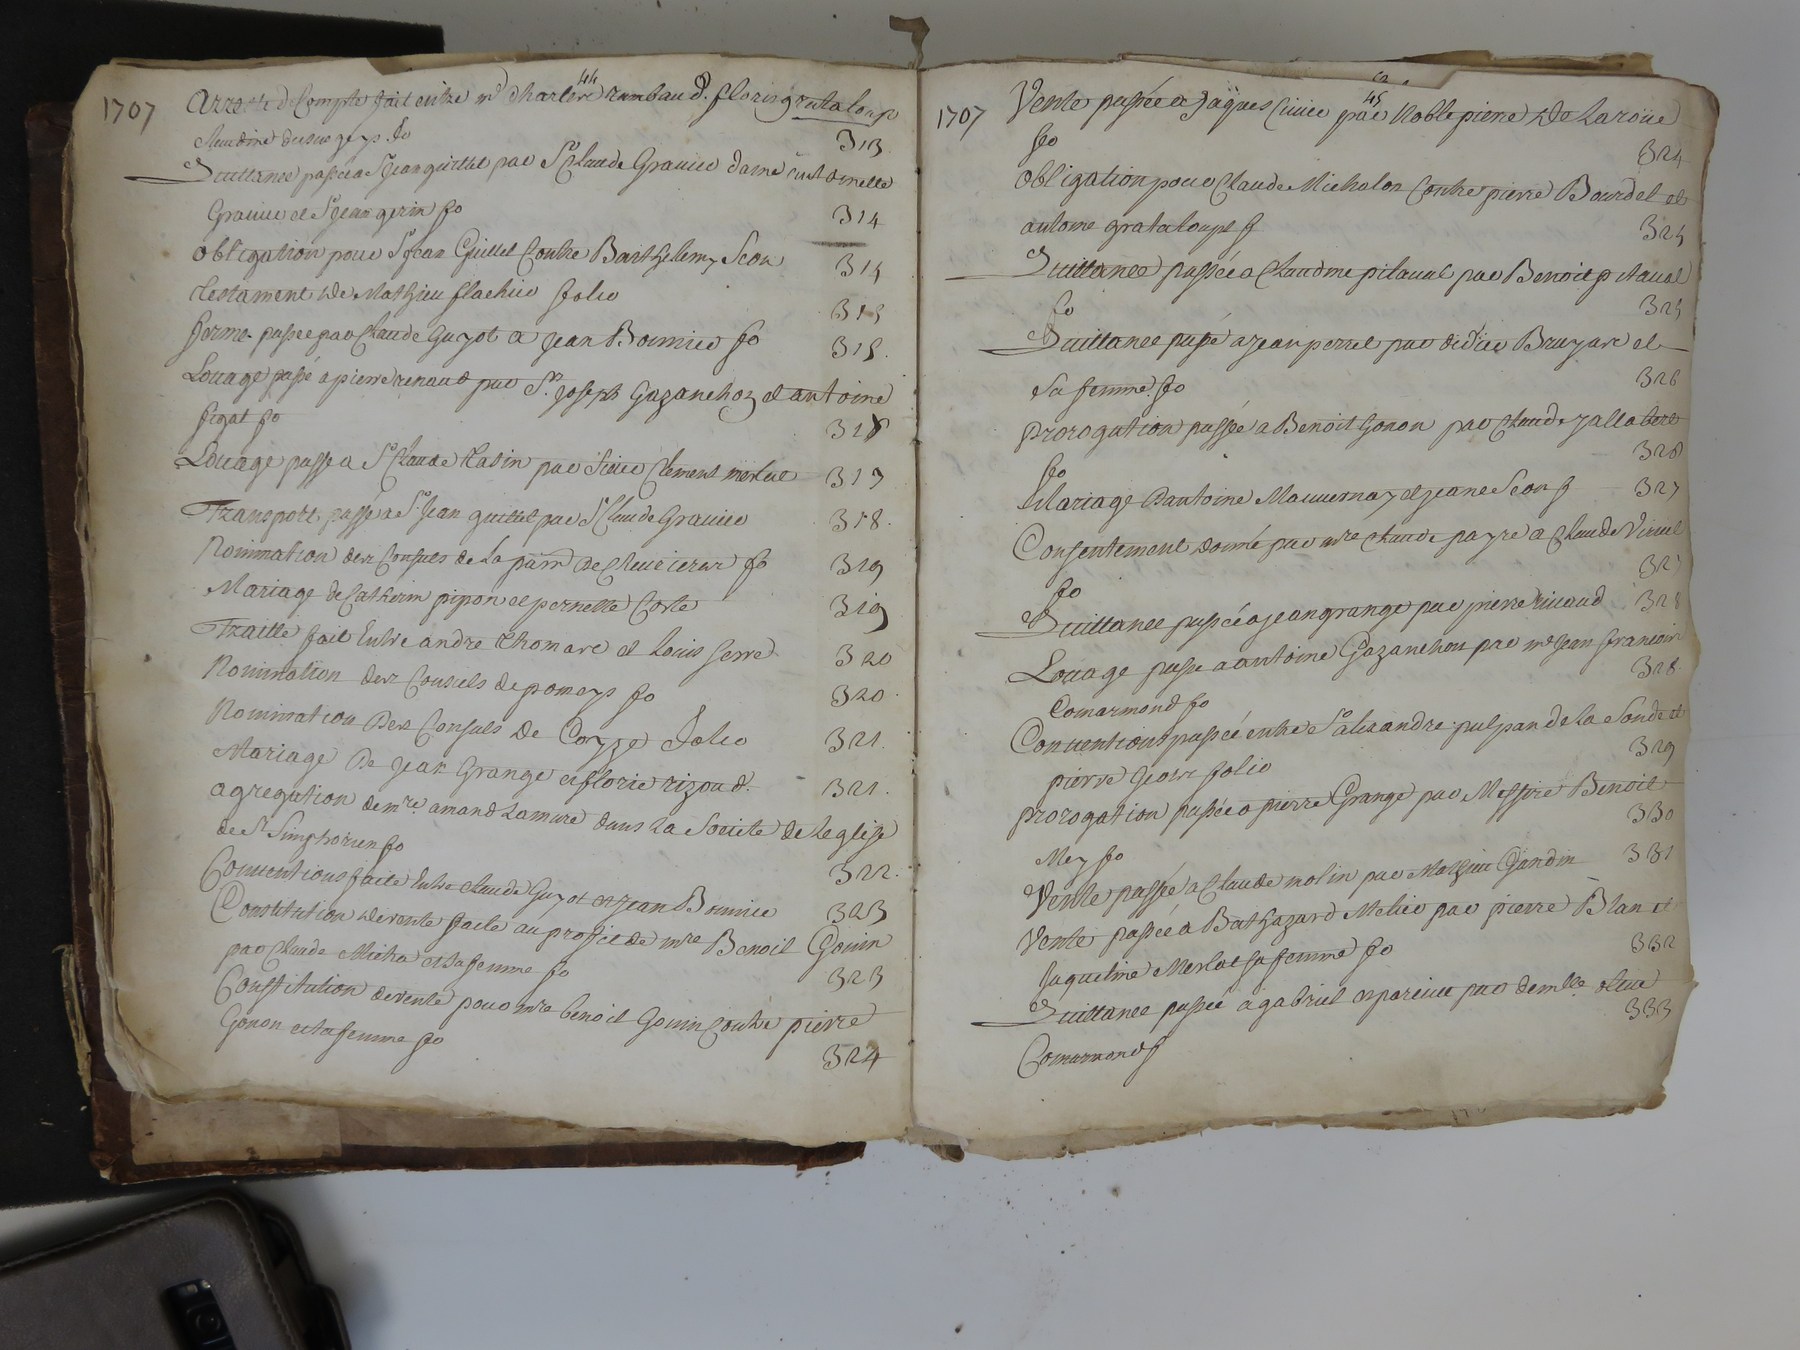 44
1707 Arreste de Compte fait entre md charles rambaud. floris grataloup
Claudine du suc geys fo 313
Quittance passée a S Jean guittet par Sr Claude Gravier dame Antoinette
Gravier et Sr Jean gerin fo 314
obligation pour Sr Jean Guittet Contre Barthelemy Seon 315
testament de Mathieu flachier folio 315
ferme passée par Claude Guyot a Jean Bonnier fo 315.
Louage passé a pierre renaud par Sr. Joseph Gazanchon et antoine
figat fo 316
Louage passe a Sr Claude Ratin par Sieur Clement merlat 317
Transport passé a Sr Jean guittet par Sr Claude Gravier 318.
Nomination des Consuls de La parr de Chevrieres fo 319
Mariage de Catherin pipon et pernette Coste 319
Traitté fait Entre andre thomare et Louis serre 320
Nomination des Consuls de pomeys fo 320.
Nomination Des Consuls De Coyze folio 321.
Mariage De Jean Grange et florie rizoud. 321.
agregation de mre. amand Lamure dans La Societe de Leglise
de St Simphorien fo 322.
Conventions faite Entre Claude Guyot et Jean Bonnier 323
Constitution de rente faite au profit de mre Benoit Gonin
par Claude Micha et sa femme fo 323
Constitution de rente pour mre benoit Gonin Contre pierre
Gonon et sa femme fo 324
45
1707 Vente passée a Jaques Civier par Noble pierre De Laroüe
fo 324
obligation pour Claude Michalon Contre pierre Bourdet et
antoine grataloupt f 325
Quittance passée a Claudine pitaval par Benoit pitaval
fo 325
Quittance passé a Jean perret par didier Bruyare et
sa femme. fo 326
prorogation passée a Benoit Gonon par Claude Jallabert
fo 326
Mariage D'antoine Mauvernay et Jeane Seon f 327
Consentement donné par mre Claude payre a Claude Vinal
fo 327
Quittance passée a Jean grange par pierre rivaud 328
Louage passe a antoine Gazanchon par md Jean francois
Comarmond fo 328.
Conventions passée entre Sr alixandre pulpan de la Sonde et
pierre Jeoir folio 329
prorogation passée a pierre Grange par Messire Benoit
Mey fo 330
Vente passée a Claude molin par Mathieu Gandin 331
Vente passée a Bathazard Melier par pierre Blan et
Jaqueline Merlat sa femme fo 332
Quittance passée a gabriel esparcieu par demlle. olive
Comarmond f 333